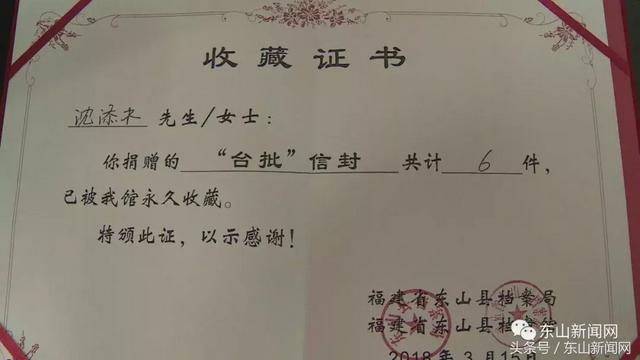 收藏证书
沈添木 先生/女士：
你捐赠的 “台批”信封 共计 6 件，
已被我馆永久收藏。
特颁此证，以示感谢！
福建省东山县档案局
福建省东山县档案馆
2018年3月15日
东山新闻网
头条号/东山新闻网